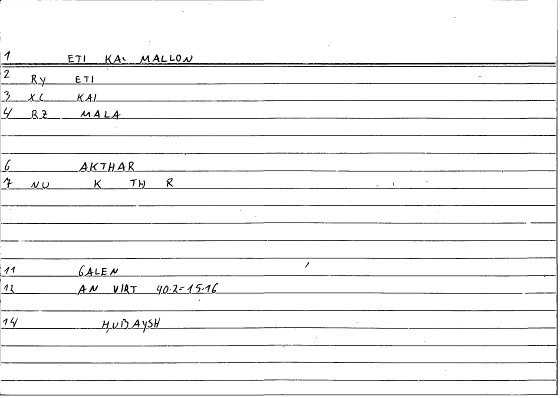 1 ETI KAI MALLON
2 RY ETI
3 XC KAI
4 RZ MALA
6 AKTHAR
7 NU K TH R
11 GALEN
12 AN VIRT 40.2=15.16
14 HUBAYSH